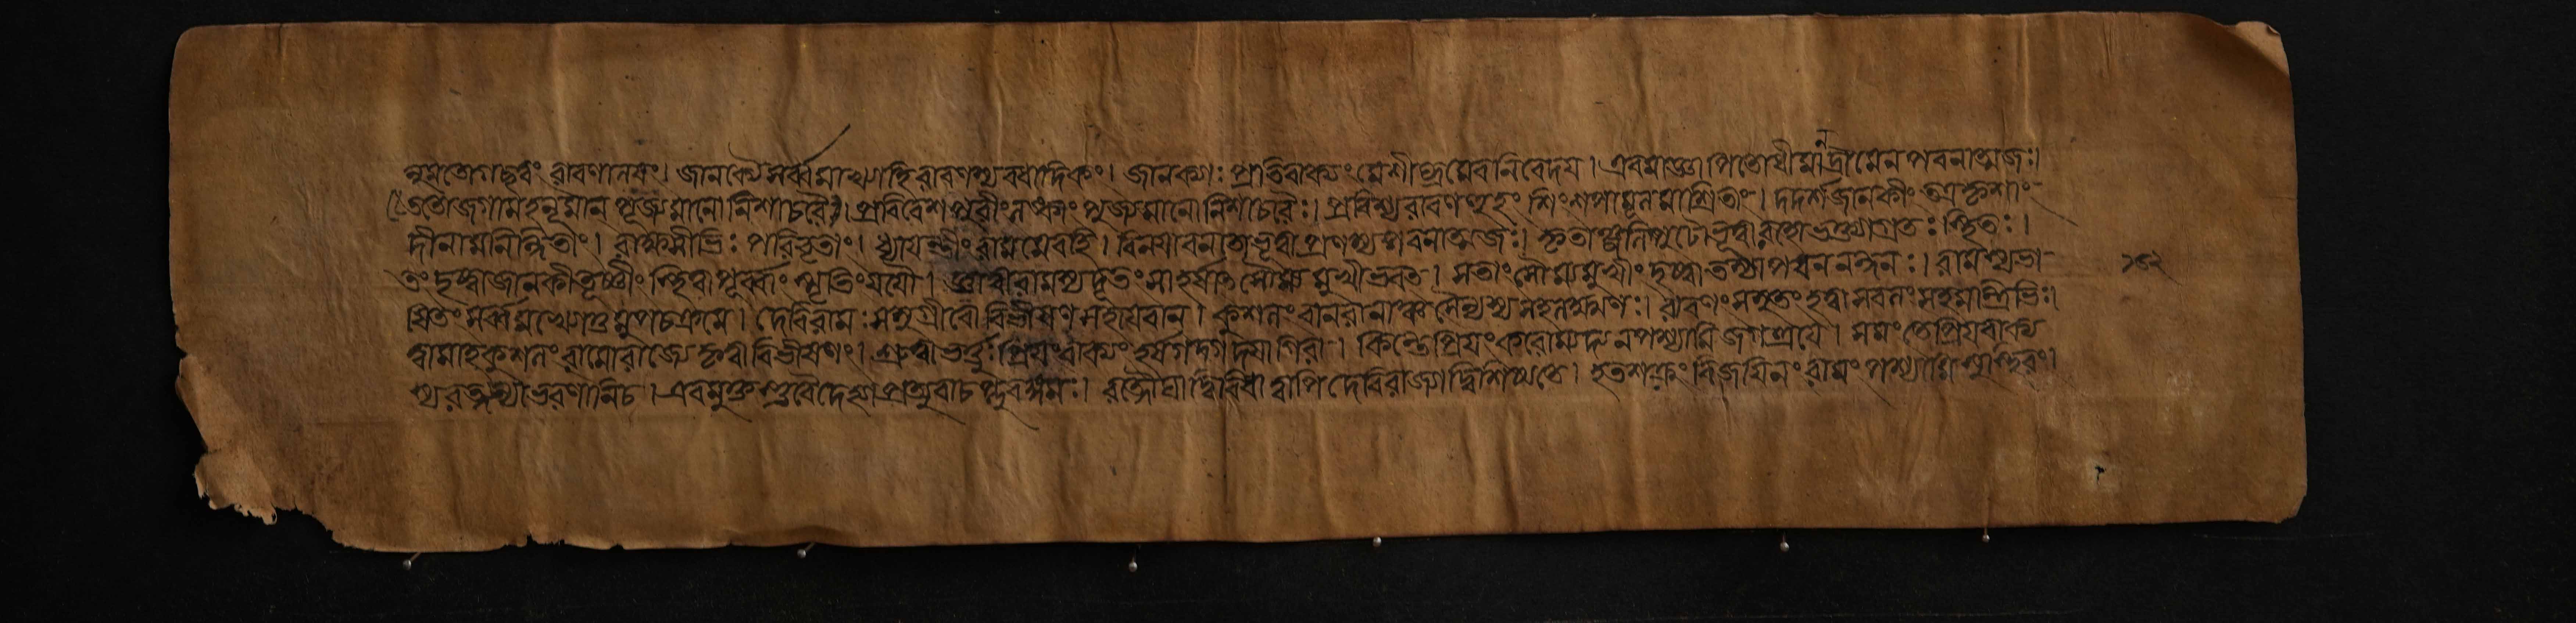 নুমতেগচ্ছত্বং রাবণালযং। জানক্যৈসর্ব্বমাখ্যাহিরাবণস্যবধাদিকং। জানক্যাঃ প্রতিবাক্যংমেশীঘ্রমেবনিবেদয। এবমাজ্ঞাপিতোধীমান্রামেনপবনাত্মজঃ।
ততোজগামহনূমানপূজ্যমানোনিশাচরৈঃ। প্রবিবেশপুরীংলঙ্কাংপুজ্যমানোনিশাচরৈঃ। প্রবিশ্যরাবণগৃহং শিংশপামূলমাশ্রিতাং। দদর্শজানকীংতত্রকৃশাং-
দীনামনিন্দিতাং। রাক্ষসীভিঃ পরিবৃতাং। ধ্যাযন্তীংরামমেবহি। বিনযাবনতোভূত্বাপ্রণম্যপবনাত্মজঃ। কৃতাঞ্জলিপুটোভূত্বাপ্রহ্বোভক্ত্যাগ্রতঃ স্থিতঃ।
তংদৃষ্ট্বাজানকীতূষ্ণীংস্থিত্বাপূর্ব্বংস্মৃতিংযযৌ। জ্ঞাত্বারামস্যদূতংসাহর্ষাৎসৌম্যমুখীভবৎ। সতাংসৌম্যমুখীংদৃষ্ট্বাতস্যাপবননন্দনঃ। রামস্যভা- ১৫২
ষিতংসর্ব্বমাখ্যাতুমুপচক্রমে। দেবিরামঃসসুগ্রীবোবিভীষণসহাযবান্। কুশলংবানরানাঞ্চসৈন্যশ্চসহলক্ষ্মণঃ। রাবণংসসুতংহত্বাসবলংসহমন্ত্রিভিঃ।
ত্বামাহকুশলংরামোরাজ্যেকৃত্বাবিভীষণং। শ্রুত্বাভর্ত্তুঃপ্রিযংবাক্যংহর্ষগদ্গদযাগিরা। কিন্তেপ্রিযংকরোম্যদ্যনপশ্যামিজগত্রযে। সমংতেপ্রিযবাক্য
স্যরত্নান্যাভরণানিচ। এবমুক্তস্তুবৈদেহ্যাপ্রত্যুবাচপ্লবঙ্গমঃ। রত্নৌঘাদ্বিবিধাদ্বাপিদেবিরাজ্যাদ্বিশিষ্যতে। হতশত্রুংবিজযিনংরামংপশ্যামিসুস্থিরং।